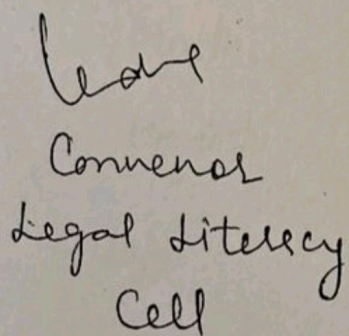 Convenor
Legal Literecy
Cell